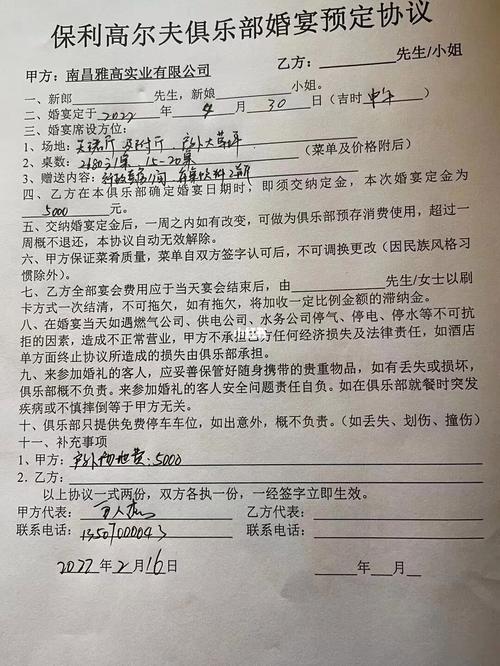 保利高尔夫俱乐部婚宴预定协议
甲方：南昌雅高实业有限公司 乙方：先生/小姐
一、新郎先生，新娘小姐。
二、婚宴定于2022年4月30日（吉时中午）
三、婚宴席设方位：
1、场地：芙蓉厅 户外大草坪
2、桌数：2680元/桌，15-20桌（菜单及价格附后）
3、赠送内容：
四、乙方在本俱乐部确定婚宴日期时，即须交纳定金，本次婚宴定金为
5000元。
五、交纳婚宴定金后，一周之内如有改变，可做为俱乐部预存消费使用，超过一
周概不退还，本协议自动无效解除。
六、甲方保证菜肴质量，菜单自双方签字认可后，不可调换更改（因民族风格习
惯除外）。
七、乙方全部宴会费用应于当天宴会结束后，由先生/女士以刷
卡方式一次结清，不可拖欠，如有拖欠，将加收一定比例金额的滞纳金。
八、在婚宴当天如遇燃气公司、供电公司、水务公司停气、停电、停水等不可抗
拒的因素，造成不正常营业，甲方不承担乙方任何经济损失及法律责任，如酒店
单方面终止协议所造成的损失由俱乐部承担。
九、来参加婚礼的客人，应妥善保管好随身携带的贵重物品，如有丢失或损坏，
俱乐部概不负责。来参加婚礼的客人安全问题责任自负。如在俱乐部就餐时突发
疾病或不慎摔倒等于甲方无关。
十、俱乐部只提供免费停车车位，如出意外，概不负责。（如丢失、划伤、撞伤）
十一、补充事项
1、甲方：户外场地费：5000
2、乙方：
以上协议一式两份，双方各执一份，一经签字立即生效。
甲方代表： 乙方代表：
联系电话：13507000043 联系电话：
2022年2月16日 年月